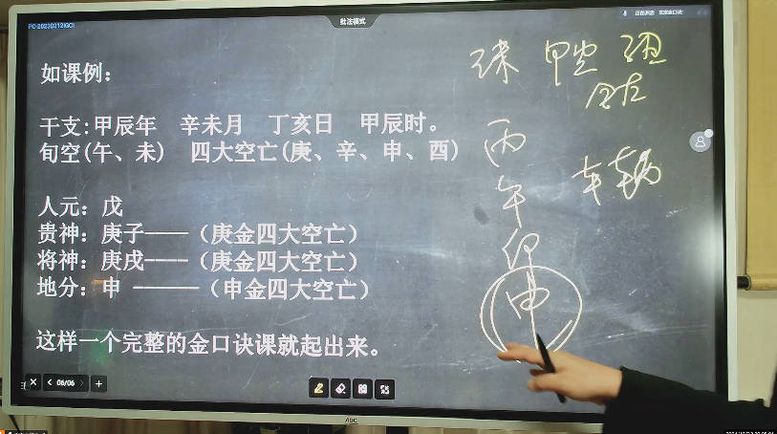 批注模式
如课例：
干支:甲辰年 辛未月 丁亥日 甲辰时。
旬空(午、未) 四大空亡(庚、辛、申、酉)
人元：戊
贵神：庚子——（庚金四大空亡）
将神：庚戌——（庚金四大空亡）
地分：申 ——（申金四大空亡）
这样一个完整的金口诀课就起出来。
丙
午
车辆
申
06/06